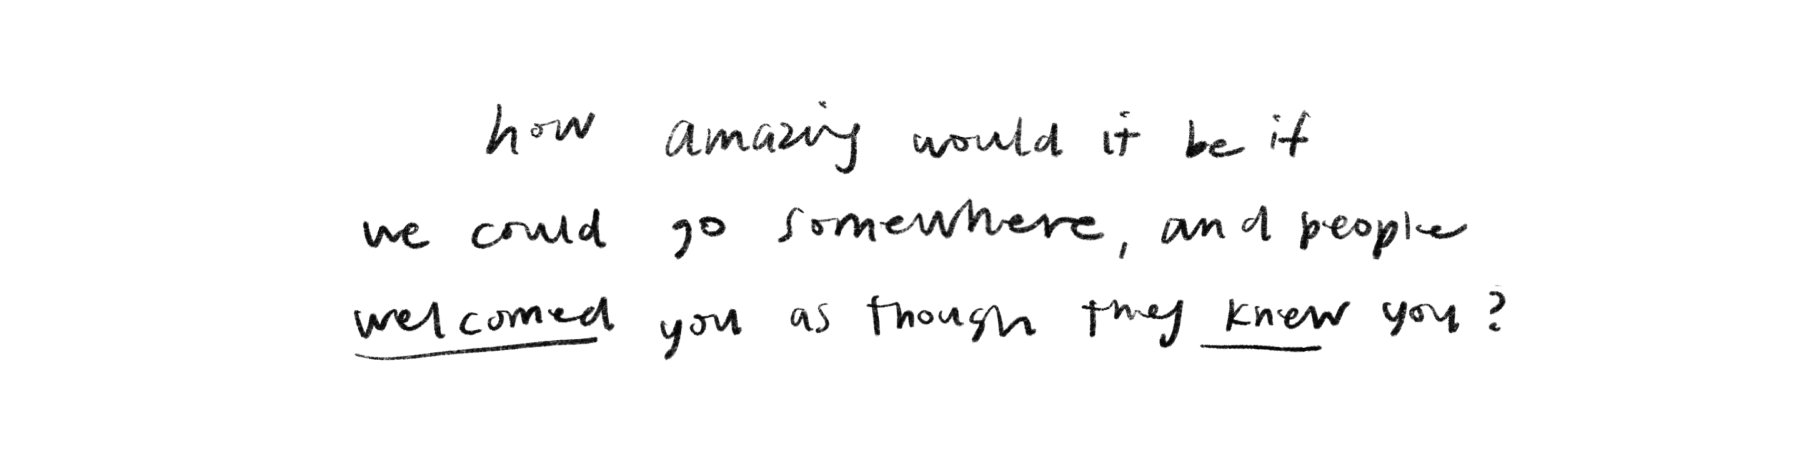 how amazing would it be if
we could go somewhere, and people
welcomed you as though they knew you?